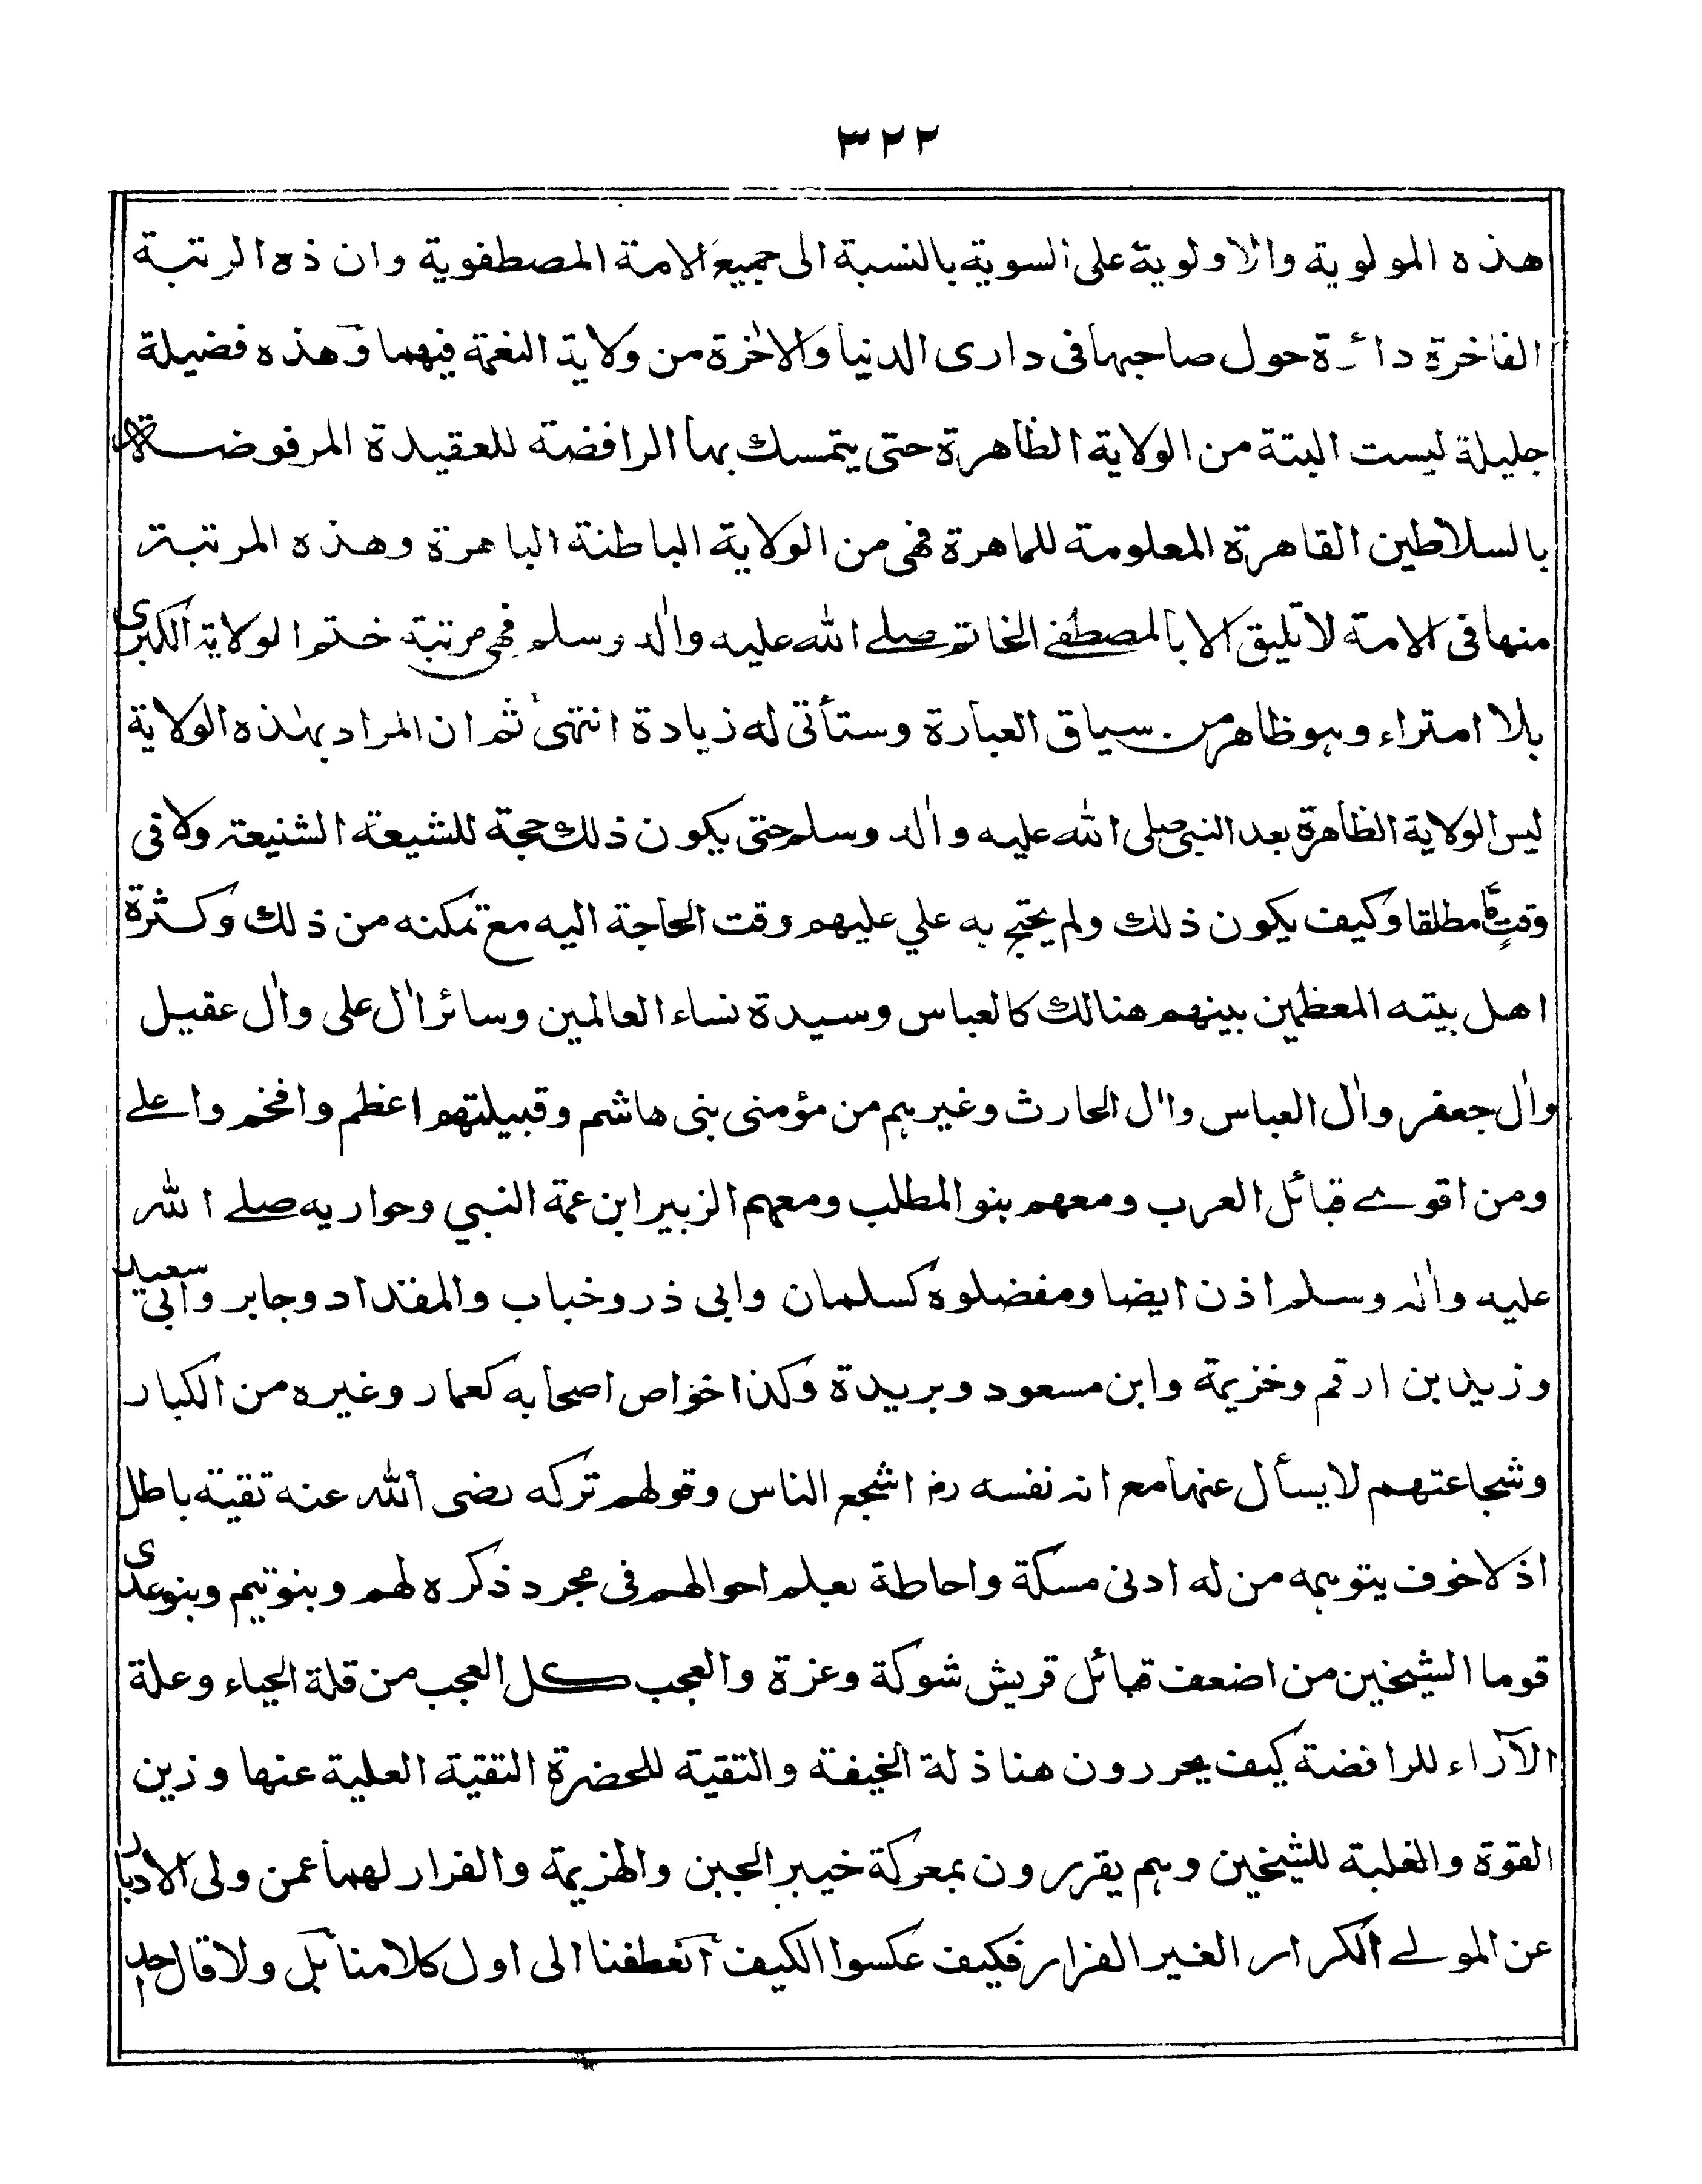 ٣٢٢
هذه المولوية والاولوية على السوية بالنسبة الى جميع الامة المصطفوية وان ذه الرتبة
الفاخرة دائرة حول صاحبها فى دارى الدنيا والاخرة من ولاية النعمة فيهما وهذه فضيلة
جليلة ليست البتة من الولاية الظاهرة حتى يتمسك بها الرافضة للعقيدة المرفوضة
بالسلاطين القاهرة المعلومة للماهرة فهى من الولاية الباطنة الباهرة وهذه المرتبة
منها فى الامة لا تليق الا بالمصطفے الخاتم صلے الله عليه واٰله وسلم فهى مرتبة ختم الولاية الكبرى
بلا امتراء وهو ظاهر من سياق العبارة وستأتى له زيادة انتهى ثم ان المراد بهذه الولاية
ليس الولاية الظاهرة بعد النبى صلى الله عليه واٰله وسلم حتى يكون ذلك حجة للشيعة الشنيعة ولا فى
وقت ما مطلقا وكيف يكون ذلك ولم يحتج به علي عليهم وقت الحاجة اليه مع تمكنه من ذلك وكثرة
اهل بيته المعظمين بينهم هنالك كالعباس وسيدة نساء العالمين وسائر اٰل على واٰل عقيل
واٰل جعفر واٰل العباس واٰل الحارث وغيرهم من مؤمنى بنى هاشم وقبيلتهم اعظم وافخم واعلے
ومن اقوے قبائل العرب ومعهم بنو المطلب ومعهم الزبير ابن عمة النبي وحواريه صلے الله
عليه واٰله وسلم اذن ايضا ومفضلوه كسلمان وابى ذر وخباب والمقداد وجابر وابى سعيد
وزيد بن ارقم وخزيمة وابن مسعود وبريدة وكذا خواص اصحابه كعمار وغيره من الكبار
وشجاعتهم لا يسأل عنها مع انه نفسه رض اشجع الناس وقولهم تركه رضى الله عنه تقية باطل
اذ لا خوف يتوهمه من له ادنى مسكة واحاطة بعلم احوالهم فى مجرد ذكره لهم وبنو تيم وبنو عدى
قوما الشيخين من اضعف قبائل قريش شوكة وعزة والعجب كل العجب من قلة الحياء وعلة
الآراء للرافضة كيف يحررون هنا ذلة الخيفة والتقية للحضرة التقية العلية عنها وزين
القوة والغلبة للشيخين وهم يقررون بمعركة خيبر الجبن والهزيمة والفرار لهما عمن ولى الادبار
عن المولے الكرار الغير الفرار فكيف عكسوا الكيف انعطفنا الى اول كلامنا بل ولا قال احد